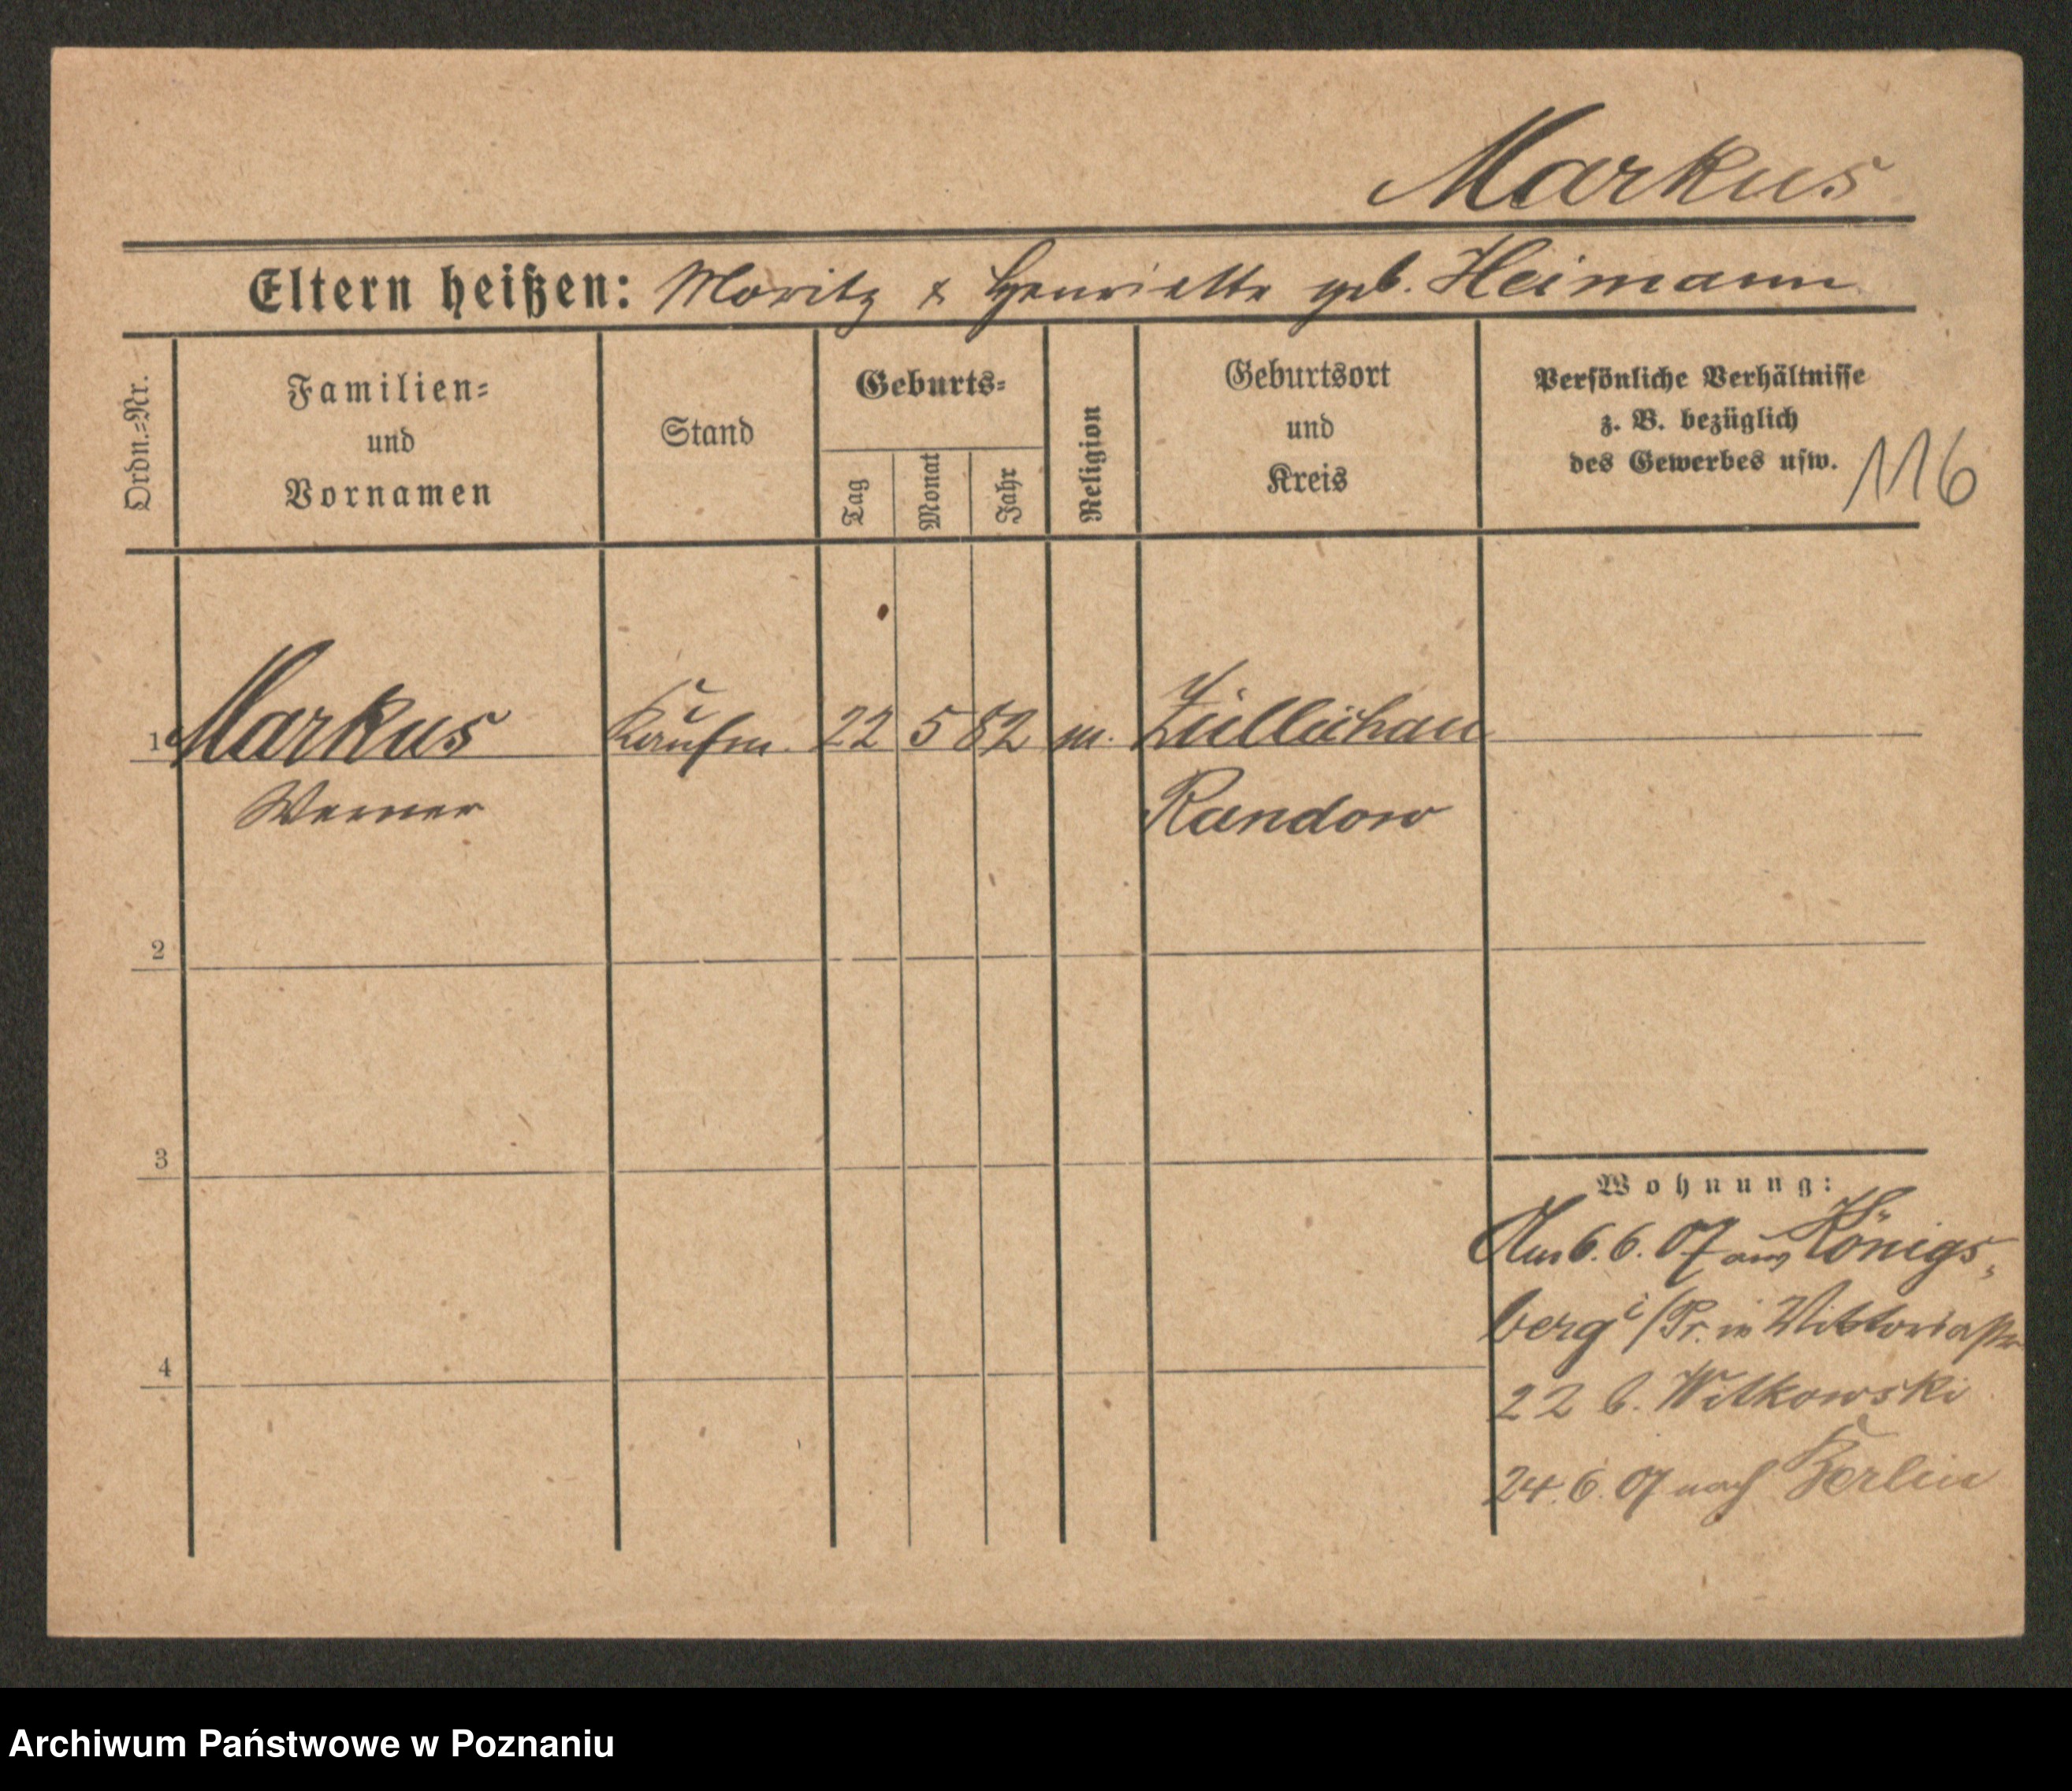 Markus
Eltern heißen: Moritz & Henriette geb. Heimann
Ordn.=Nr.
Familien=
und
Vornamen
Stand
Geburts=
Tag
Monat
Jahr
Religion
Geburtsort
und
Kreis
Persönliche Verhältnisse
z. B. bezüglich
des Gewerbes usw.
116
1 Markus Kaufm. 22 5 82 m. Züllichau
Werner Randow
2
3
Wohnung:
Am 6.6.07 aus Königs-
berg i/Pr. in Viktoriastr
22 b. Witkowski
4
24.6.07 nach Berlin
Archiwum Państwowe w Poznaniu